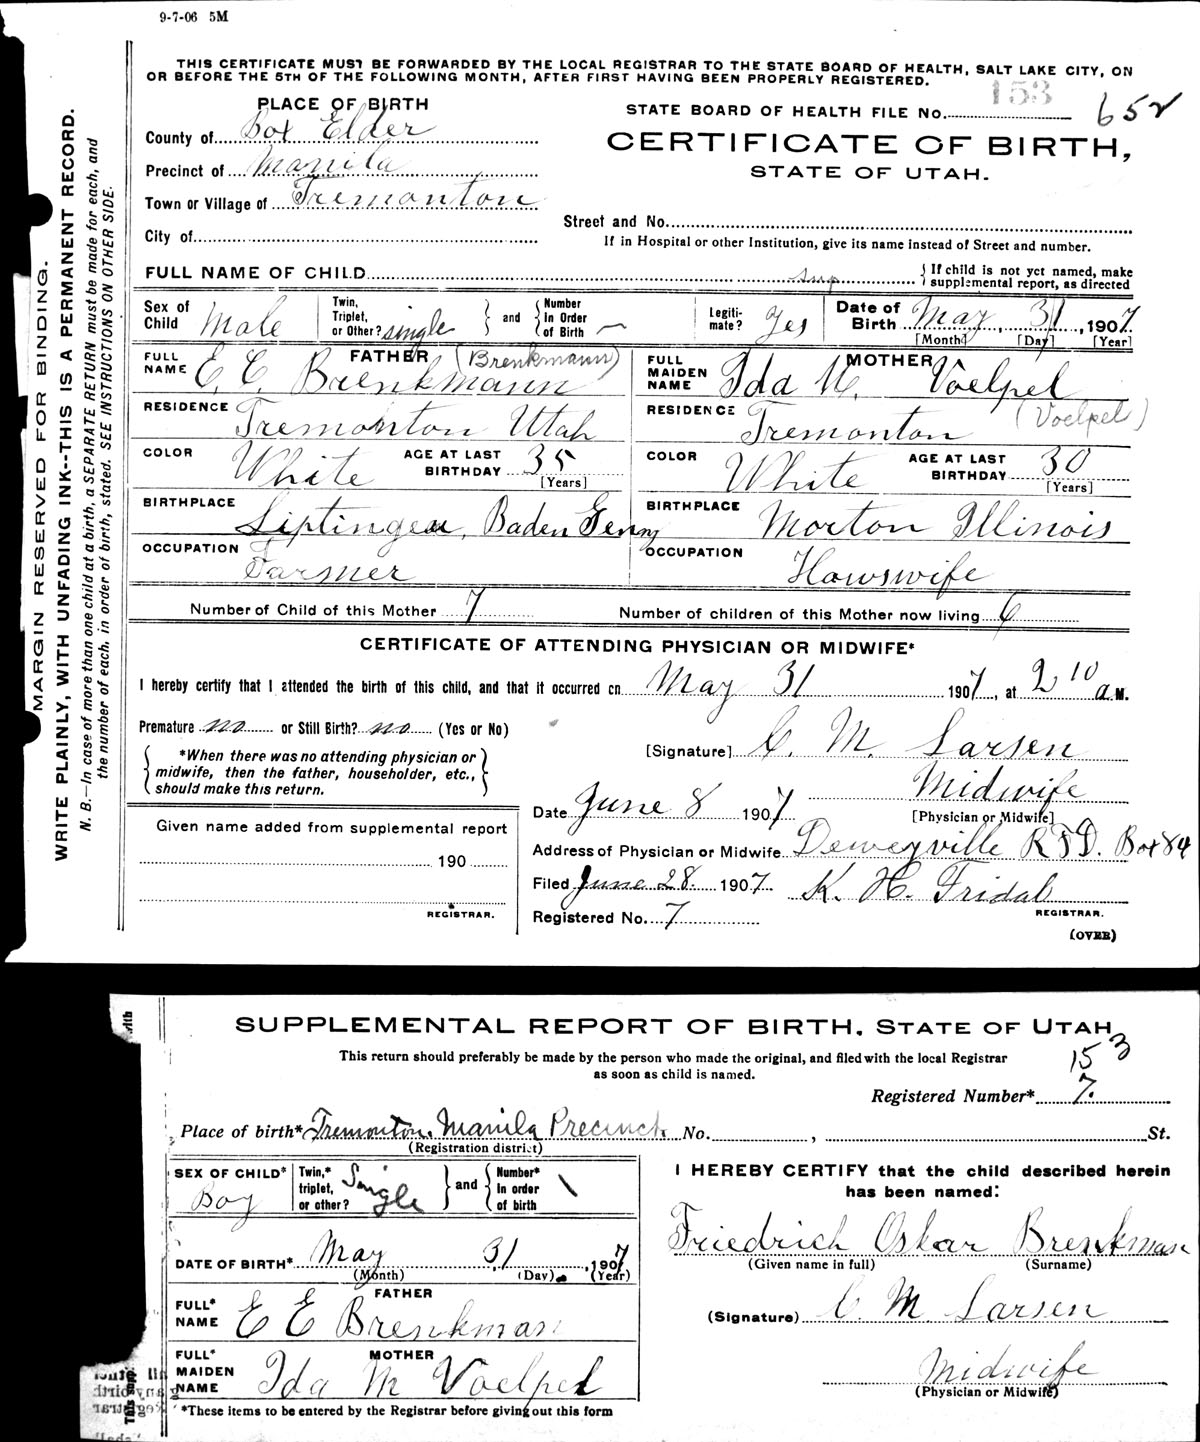 9-7-06 5M
THIS CERTIFICATE MUST BE FORWARDED BY THE LOCAL REGISTRAR TO THE STATE BOARD OF HEALTH, SALT LAKE CITY, ON
OR BEFORE THE 5TH OF THE FOLLOWING MONTH, AFTER FIRST HAVING BEEN PROPERLY REGISTERED.
MARGIN RESERVED FOR BINDING.
WRITE PLAINLY, WITH UNFADING INK--THIS IS A PERMANENT RECORD.
N. B.—In case of more than one child at a birth, a SEPARATE RETURN must be made for each, and
the number of each, in order of birth, stated. SEE INSTRUCTIONS ON OTHER SIDE.
PLACE OF BIRTH
County of Box Elder
Precinct of Manila
Town or Village of Tremonton
City of
STATE BOARD OF HEALTH FILE No. 153 652
CERTIFICATE OF BIRTH,
STATE OF UTAH.
Street and No.
If in Hospital or other Institution, give its name instead of Street and number.
FULL NAME OF CHILD sup { If child is not yet named, make supplemental report, as directed
Sex of Child Male
Twin, Triplet, or Other? single } and { Number In Order of Birth —
Legitimate? Yes
Date of Birth May 31, 1907
[Month] [Day] [Year]
FATHER
FULL NAME E. E. Brenkmann (Brenkmann)
RESIDENCE Tremonton Utah
COLOR White AGE AT LAST BIRTHDAY 35
[Years]
BIRTHPLACE Liptingen, Baden Germy
OCCUPATION Farmer
MOTHER
FULL MAIDEN NAME Ida M. Voelpel
(Voelpel)
RESIDENCE Tremonton
COLOR White AGE AT LAST BIRTHDAY 30
[Years]
BIRTHPLACE Morton Illinois
OCCUPATION Howswife
Number of Child of this Mother 7 Number of children of this Mother now living 6
CERTIFICATE OF ATTENDING PHYSICIAN OR MIDWIFE*
I hereby certify that I attended the birth of this child, and that it occurred on May 31 1907, at 2 10 a.M.
Premature no or Still Birth? no (Yes or No)
*When there was no attending physician or
midwife, then the father, householder, etc.,
should make this return.
[Signature] C. M. Larsen
Midwife
[Physician or Midwife]
Date June 8 1907
Address of Physician or Midwife Deweyville R F D. Box 84
Filed June 28. 1907. K. H. Fridal
REGISTRAR.
Registered No. 7
(OVER)
Given name added from supplemental report
190
REGISTRAR.
SUPPLEMENTAL REPORT OF BIRTH. STATE OF UTAH
This return should preferably be made by the person who made the original, and filed with the local Registrar
as soon as child is named.
153
Registered Number* 7.
Place of birth* Tremonton. Manila Precinct No. , St.
(Registration district)
SEX OF CHILD* Boy
Twin,* triplet, or other? Single } and { Number* In order of birth 1
DATE OF BIRTH* May 31, 1907
(Month) (Day) (Year)
FATHER
FULL* NAME E E Brenkman
MOTHER
FULL* MAIDEN NAME Ida M Voelpel
*These items to be entered by the Registrar before giving out this form
I HEREBY CERTIFY that the child described herein
has been named:
Friedrich Oskar Brenkman
(Given name in full) (Surname)
(Signature) C M Larsen
Midwife
(Physician or Midwife)